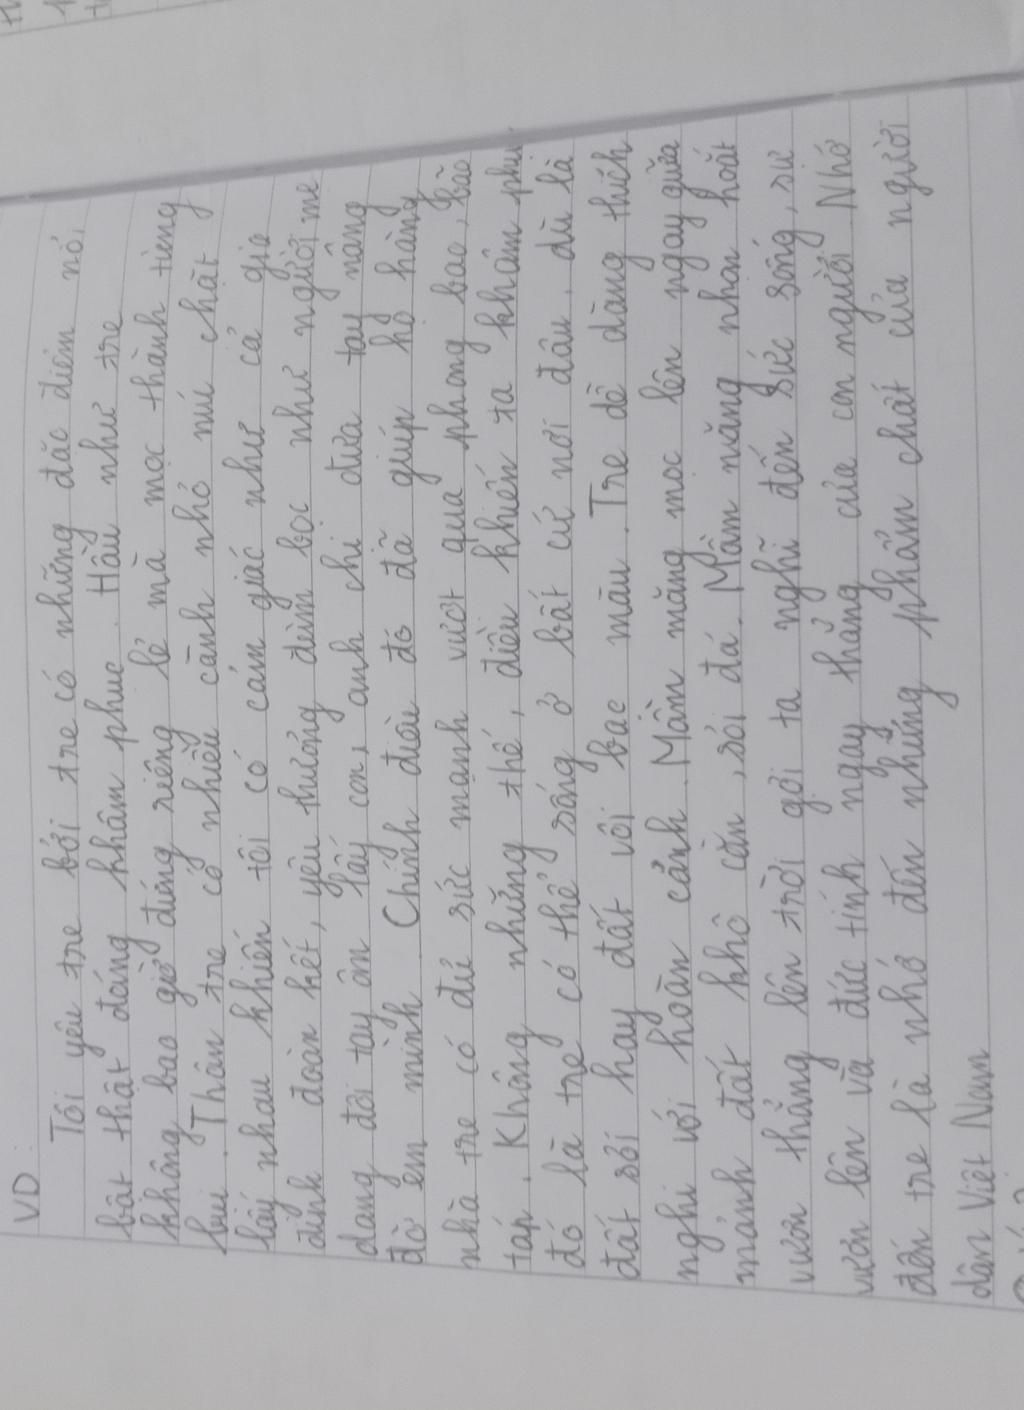 VD:
Tôi yêu tre bởi tre có những đặc điểm nổi
bật thật đáng khâm phục. Hầu như tre
không bao giờ đứng riêng lẻ mà mọc thành từng
bụi. Thân tre có nhiều cành nhỏ níu chặt
lấy nhau khiến tôi có cảm giác như cả gia
đình đoàn kết, yêu thương đùm bọc như người mẹ
dang đôi tay ôm lấy con, anh chị đưa tay nâng
đỡ em mình. Chính điều đó đã giúp họ hàng
nhà tre có đủ sức mạnh vượt qua phong bao, bão
táp. Không những thế, điều khiến ta khâm phục
đó là tre có thể sống ở bất cứ nơi đâu, dù là
đất sỏi hay đất vôi bạc màu. Tre dễ dàng thích
nghi với hoàn cảnh. Mầm măng mọc lên ngay giữa
mảnh đất khô cằn, sỏi đá. Mầm măng nhọn hoắt
vươn thẳng lên trời gợi ta nghĩ đến sức sống, sự
vươn lên và đức tính ngay thẳng của con người. Nhớ
đến tre là nhớ đến những phẩm chất của người
dân Việt Nam